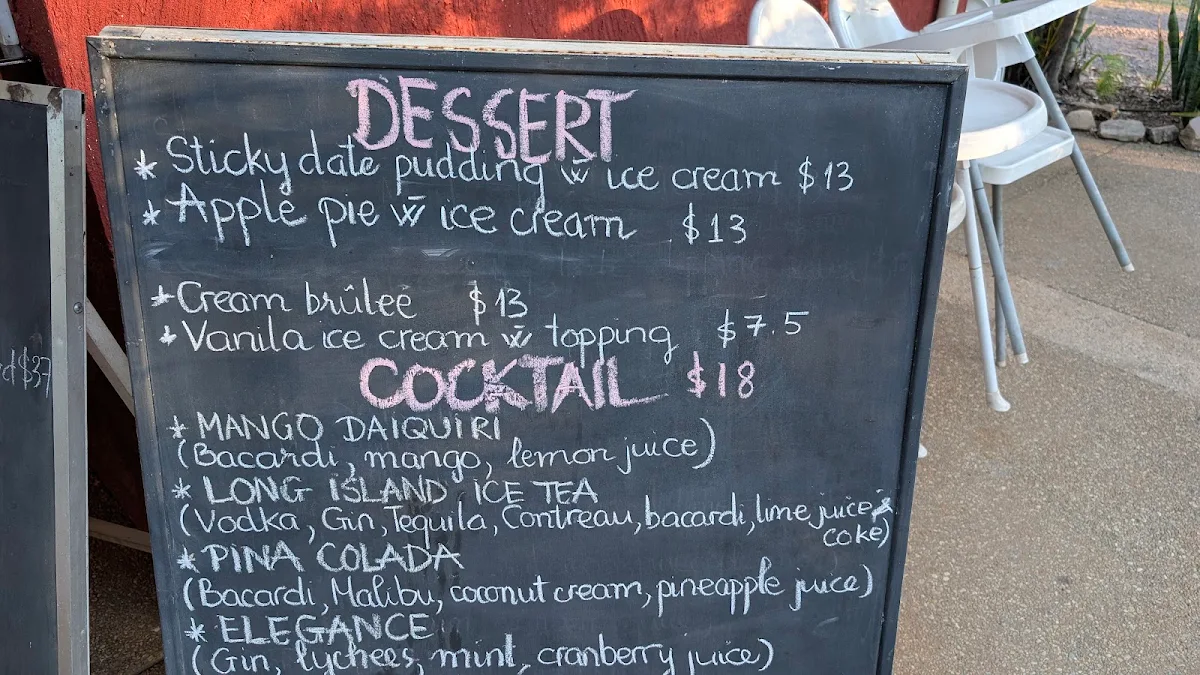 DESSERT
* Sticky date pudding w̄ ice cream $13
* Apple pie w̄ ice cream $13
* Cream brûlée $13
* Vanila ice cream w̄ topping $7.5
COCKTAIL $18
* MANGO DAIQUIRI
(Bacardi, mango, lemon juice)
* LONG ISLAND ICE TEA
(Vodka, Gin, Tequila, Contreau, bacardi, lime juice &
coke)
* PINA COLADA
(Bacardi, Malibu, coconut cream, pineapple juice)
* ELEGANCE
(Gin, lychees, mint, cranberry juice)
$37